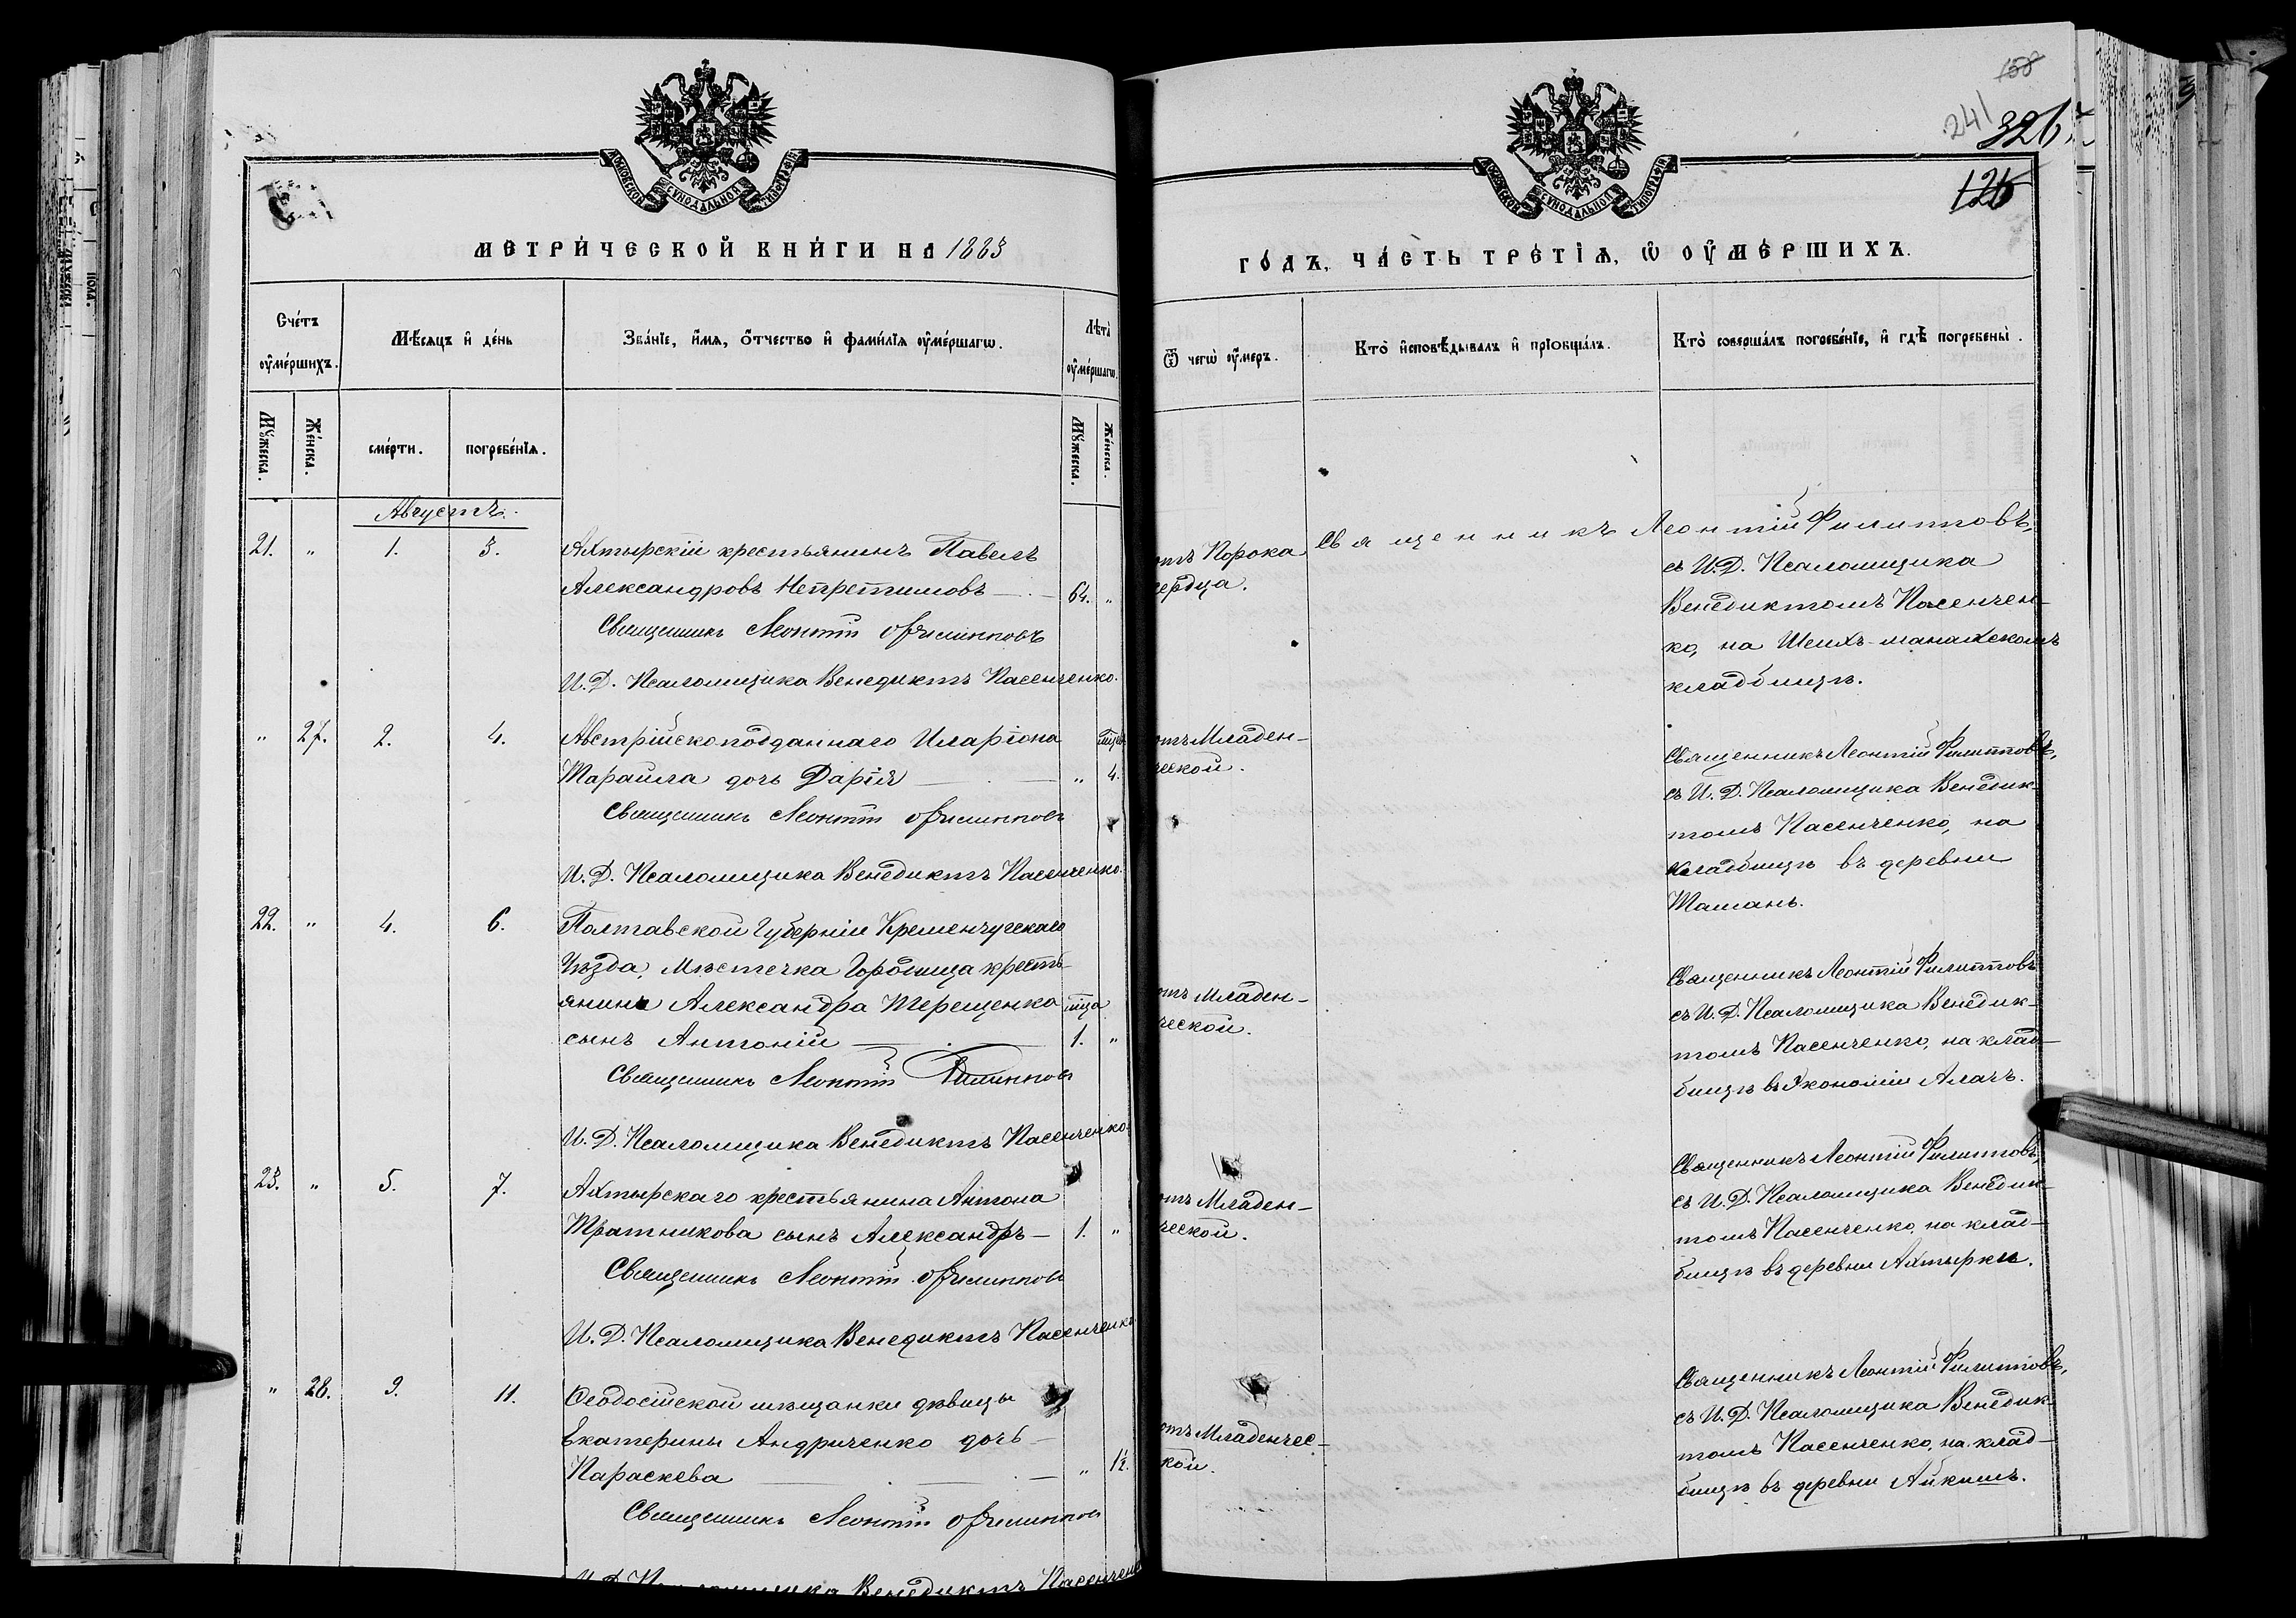 158
241
326
126
МОСКОВСКОЙ СѴНОДАЛЬНОЙ ТИПОГРАФІИ
МОСКОВСКОЙ СѴНОДАЛЬНОЙ ТИПОГРАФІИ
МЕТРИ́ЧЕСКОЙ КНИ́ГИ НА 1883
ГО́ДЪ, ЧА́СТЬ ТРЕ́ТІѦ, Ѡ҆ ОУ҆МЕ́РШИХЪ.
Сче́тъ оу҆ме́ршихъ.
Мѣ́сяцъ и҆ де́нь
Зва́нїе, и҆́мѧ, ѻ҆́тчество и҆ фами́лїѧ оу҆ме́ршагѡ.
Лѣта̀ оу҆ме́ршагѡ.
Ѿ чегѡ̀ оу҆́меръ.
Кто̀ и҆сповѣ́дывалъ и҆ прїѡбща́лъ.
Кто̀ соверша́лъ погребе́нїе, и҆ гдѣ̀ погребены̀.
Мꙋ́жеска.
Же́нска.
сме́рти.
погребе́нїѧ.
Мꙋ́жеска.
Же́нска.
Августъ.
21. " 1. 3. Ахтырскій крестьянинъ Павелъ
Александровъ Непретимовъ — 64. "
Священникъ Леонтій Филипповъ
И. Д. Псаломщика Венедиктъ Пасенченко.
отъ Порока
сердца.
Священникъ Леонтій Филипповъ,
съ И. Д. Псаломщика
Венедиктомъ Пасенчен-
ко, на Шейхъ-манайскомъ
кладбищѣ.
" 27. 2. 4. Австрійскоподданнаго Иларіона
Марайла дочь Дарія — " 4.
Священникъ Леонтій Филипповъ
И. Д. Псаломщика Венедиктъ Пасенченко.
отъ Младен-
ческой.
Священникъ Леонтій Филипповъ,
съ И. Д. Псаломщика Венедик-
томъ Пасенченко, на
кладбищѣ въ деревни
Ташань.
22. " 4. 6. Полтавской Губерніи Кременчугскаго
Уѣзда, Мѣстечка Городища кресть-
янина Александра Терещенко мца
сынъ Антоній — 1. "
Священникъ Леонтій Филипповъ
И. Д. Псаломщика Венедиктъ Пасенченко.
отъ Младен-
ческой.
Священникъ Леонтій Филипповъ
съ И. Д. Псаломщика Венедик-
томъ Пасенченко, на клад-
бищѣ въ Экономіи Алачъ.
23. " 5. 7. Ахтырскаго крестьянина Антона
Тратникова сынъ Александръ — 1. "
Священникъ Леонтій Филипповъ
И. Д. Псаломщика Венедиктъ Пасенченко.
отъ Младен-
ческой.
Священникъ Леонтій Филипповъ,
съ И. Д. Псаломщика Венедик-
томъ Пасенченко, на клад-
бищѣ въ деревни Ахтырки.
" 28. 9. 11. Ѳеодосійской мѣщанки дѣвицы
Екатерины Андриченко дочь —
Параскева — " 1½.
Священникъ Леонтій Филипповъ
И. Д. Псаломщика Венедиктъ Пасенченко
отъ Младенчес-
кой.
Священникъ Леонтій Филипповъ,
съ И. Д. Псаломщика Венедик-
томъ Пасенченко, на клад-
бищѣ въ деревни Айкишъ.